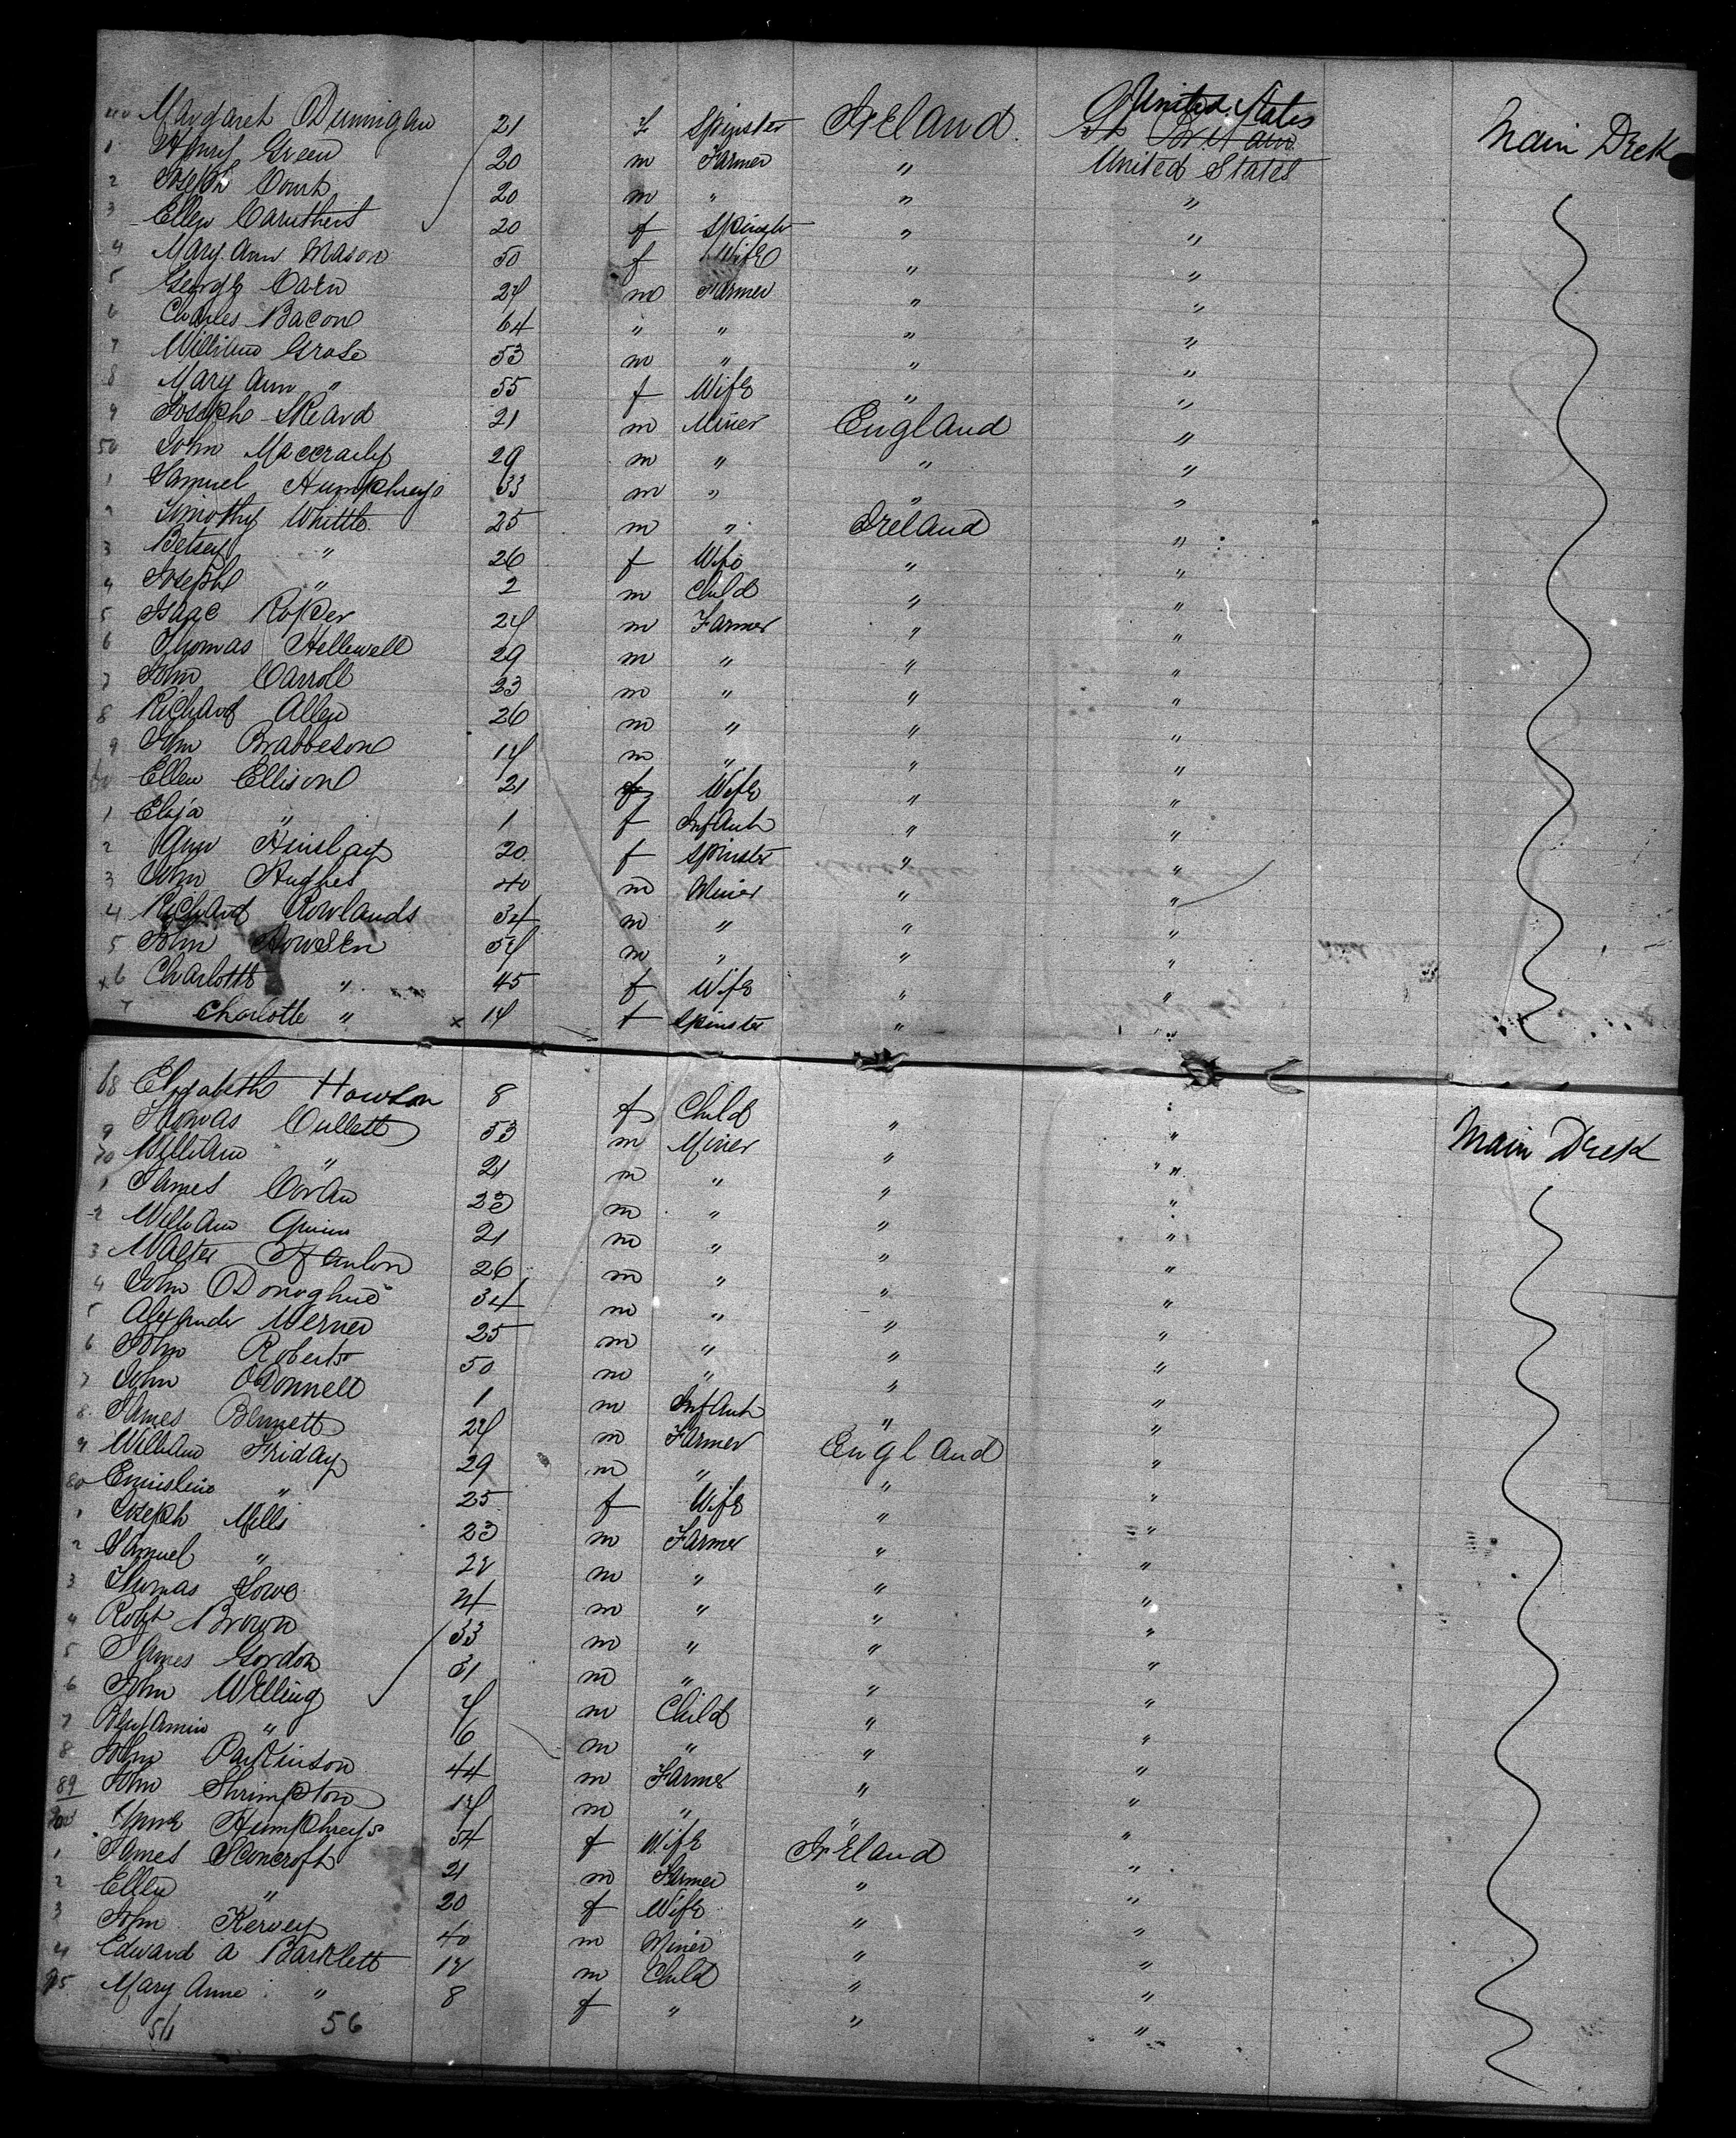 40 Margaret Dunnigan 21 f Spinster Ireland United States Main Deck
Gt Britain
1 Henry Green 20 m Farmer " United States
2 Joseph Court 20 m " " "
3 Ellen Caruthers 20 f Spinster " "
4 Mary Ann Mason 50 f Wife " "
5 George Oaen 24 m Farmer " "
6 Charles Bacon 64 " " " "
7 William Grose 53 m " " "
8 Mary Ann " 55 f Wife " "
9 Joseph Skeard 21 m Miner England "
50 John 29 m " " "
1 Samuel Humphreys 33 m " " "
2 Timothy Whittle 25 m " Ireland "
3 Betsey " 26 f Wife " "
4 Joseph " 2 m Child " "
5 Isaac Roper 24 m Farmer " "
6 Thomas Hellewell 29 m " " "
7 John Carroll 23 m " " "
8 Richard Allen 26 m " " "
9 John Brabbeson 14 m " " "
60 Ellen Ellison 21 f Wife " "
1 Eliza " 1 f Infant " "
2 Ann Kinslay 20 f Spinster " "
3 John Hughes 40 m Miner " "
4 Richard Rowlands 34 m " " "
5 John Howsen 54 m " " "
x 6 Charlotte " 45 f Wife " "
7 Charlotte " x 14 f Spinster " "
68 Elizabeth Howson 8 f Child " " Main Deck
9 Thomas Cullett 53 m Miner " "
70 William " 21 m " " "
1 James Coran 23 m " " "
2 William Quinn 21 m " " "
3 Walter Hanlon 26 m " " "
4 John O Donoghue 34 m " " "
5 Alexander Werner 25 m " " "
6 John Roberts 50 m " " "
7 John ODonnell 1 m Infant " "
8 James Bennett 24 m Farmer England "
9 William Friday 29 m " " "
80 25 f Wife " "
1 Joseph Mills 23 m Farmer " "
2 Samuel " 22 m " " "
3 Thomas Lowe 24 m " " "
4 Robt Brown 33 m " " "
5 James Gordon 31 m " " "
6 John Welling 7 m Child " "
7 Benjamin " 6 m " " "
8 John Parkinson 44 m Farmer " "
89 John Shrimpton 14 m " " "
90 Humphreys 34 f Wife Ireland "
1 James Honcroft 21 m Farmer " "
2 Ellen " 20 f Wife " "
3 John Kervey 40 m Miner " "
4 Edward A Bartlett 12 m Child " "
95 Mary Anne " 8 f " " "
56 56